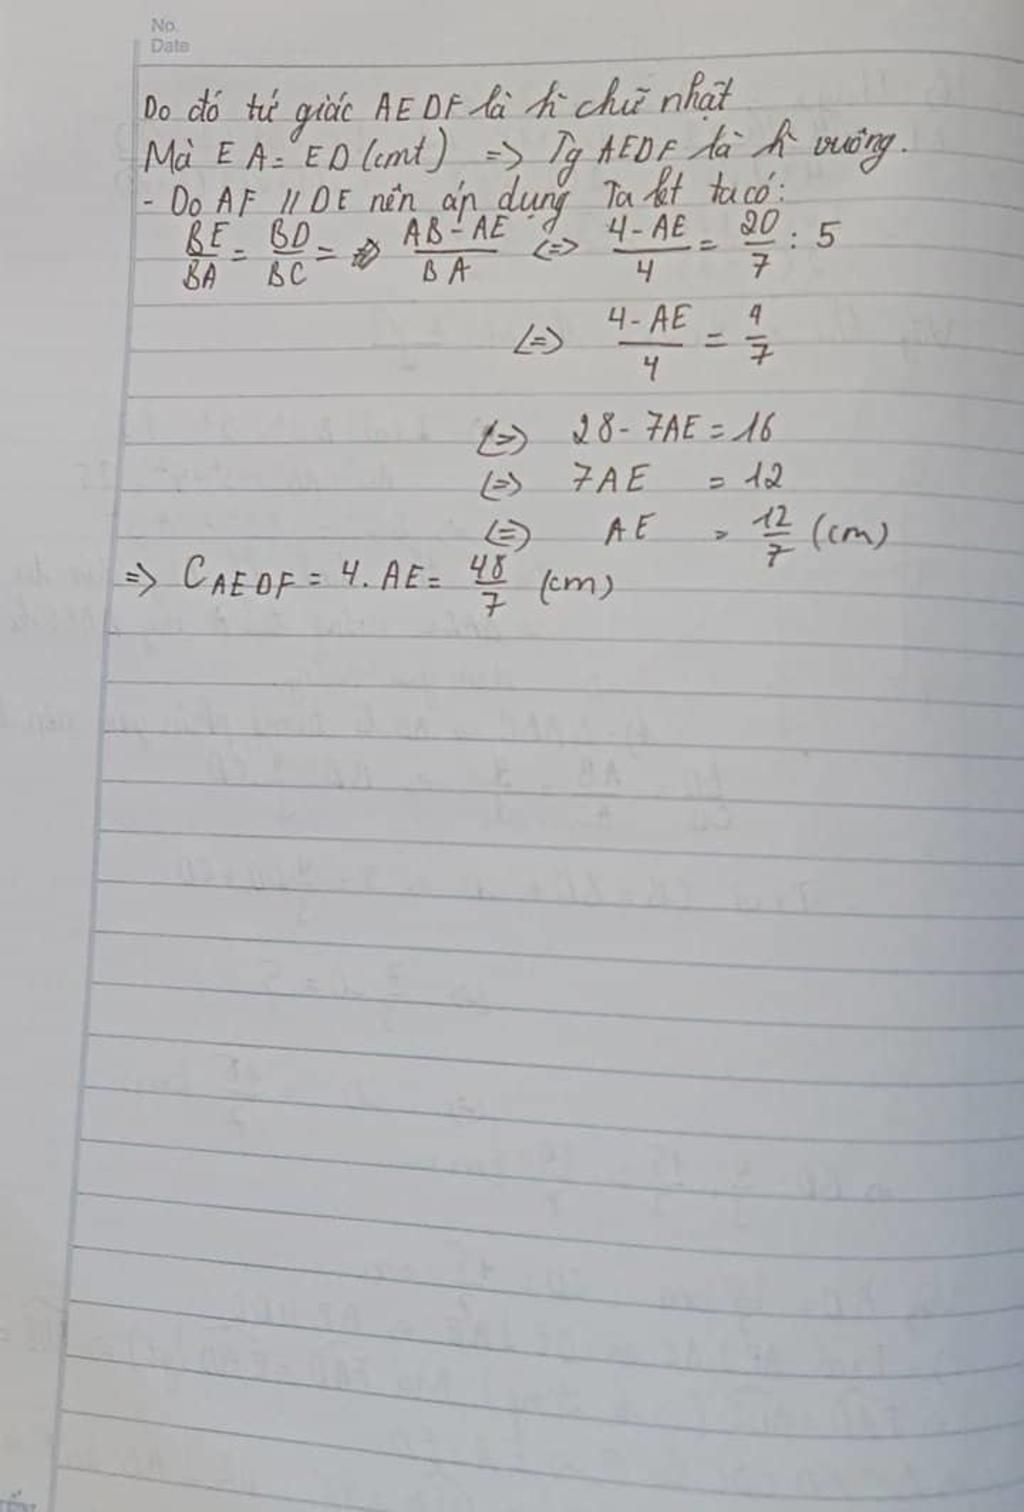 No.
Date
Do đó tứ giác AEDF là h chữ nhật
Mà EA = ED (cmt) => Tg AEDF là h vuông.
- Do AF // DE nên áp dụng Ta lét ta có:
BE/BA = BD/BC = => AB - AE/BA <=> 4 - AE/4 = 20/7 : 5
<=> 4 - AE/4 = 4/7
<=> 28 - 7AE = 16
<=> 7AE = 12
<=> AE = 12/7 (cm)
=> C AEDF = 4. AE = 48/7 (cm)